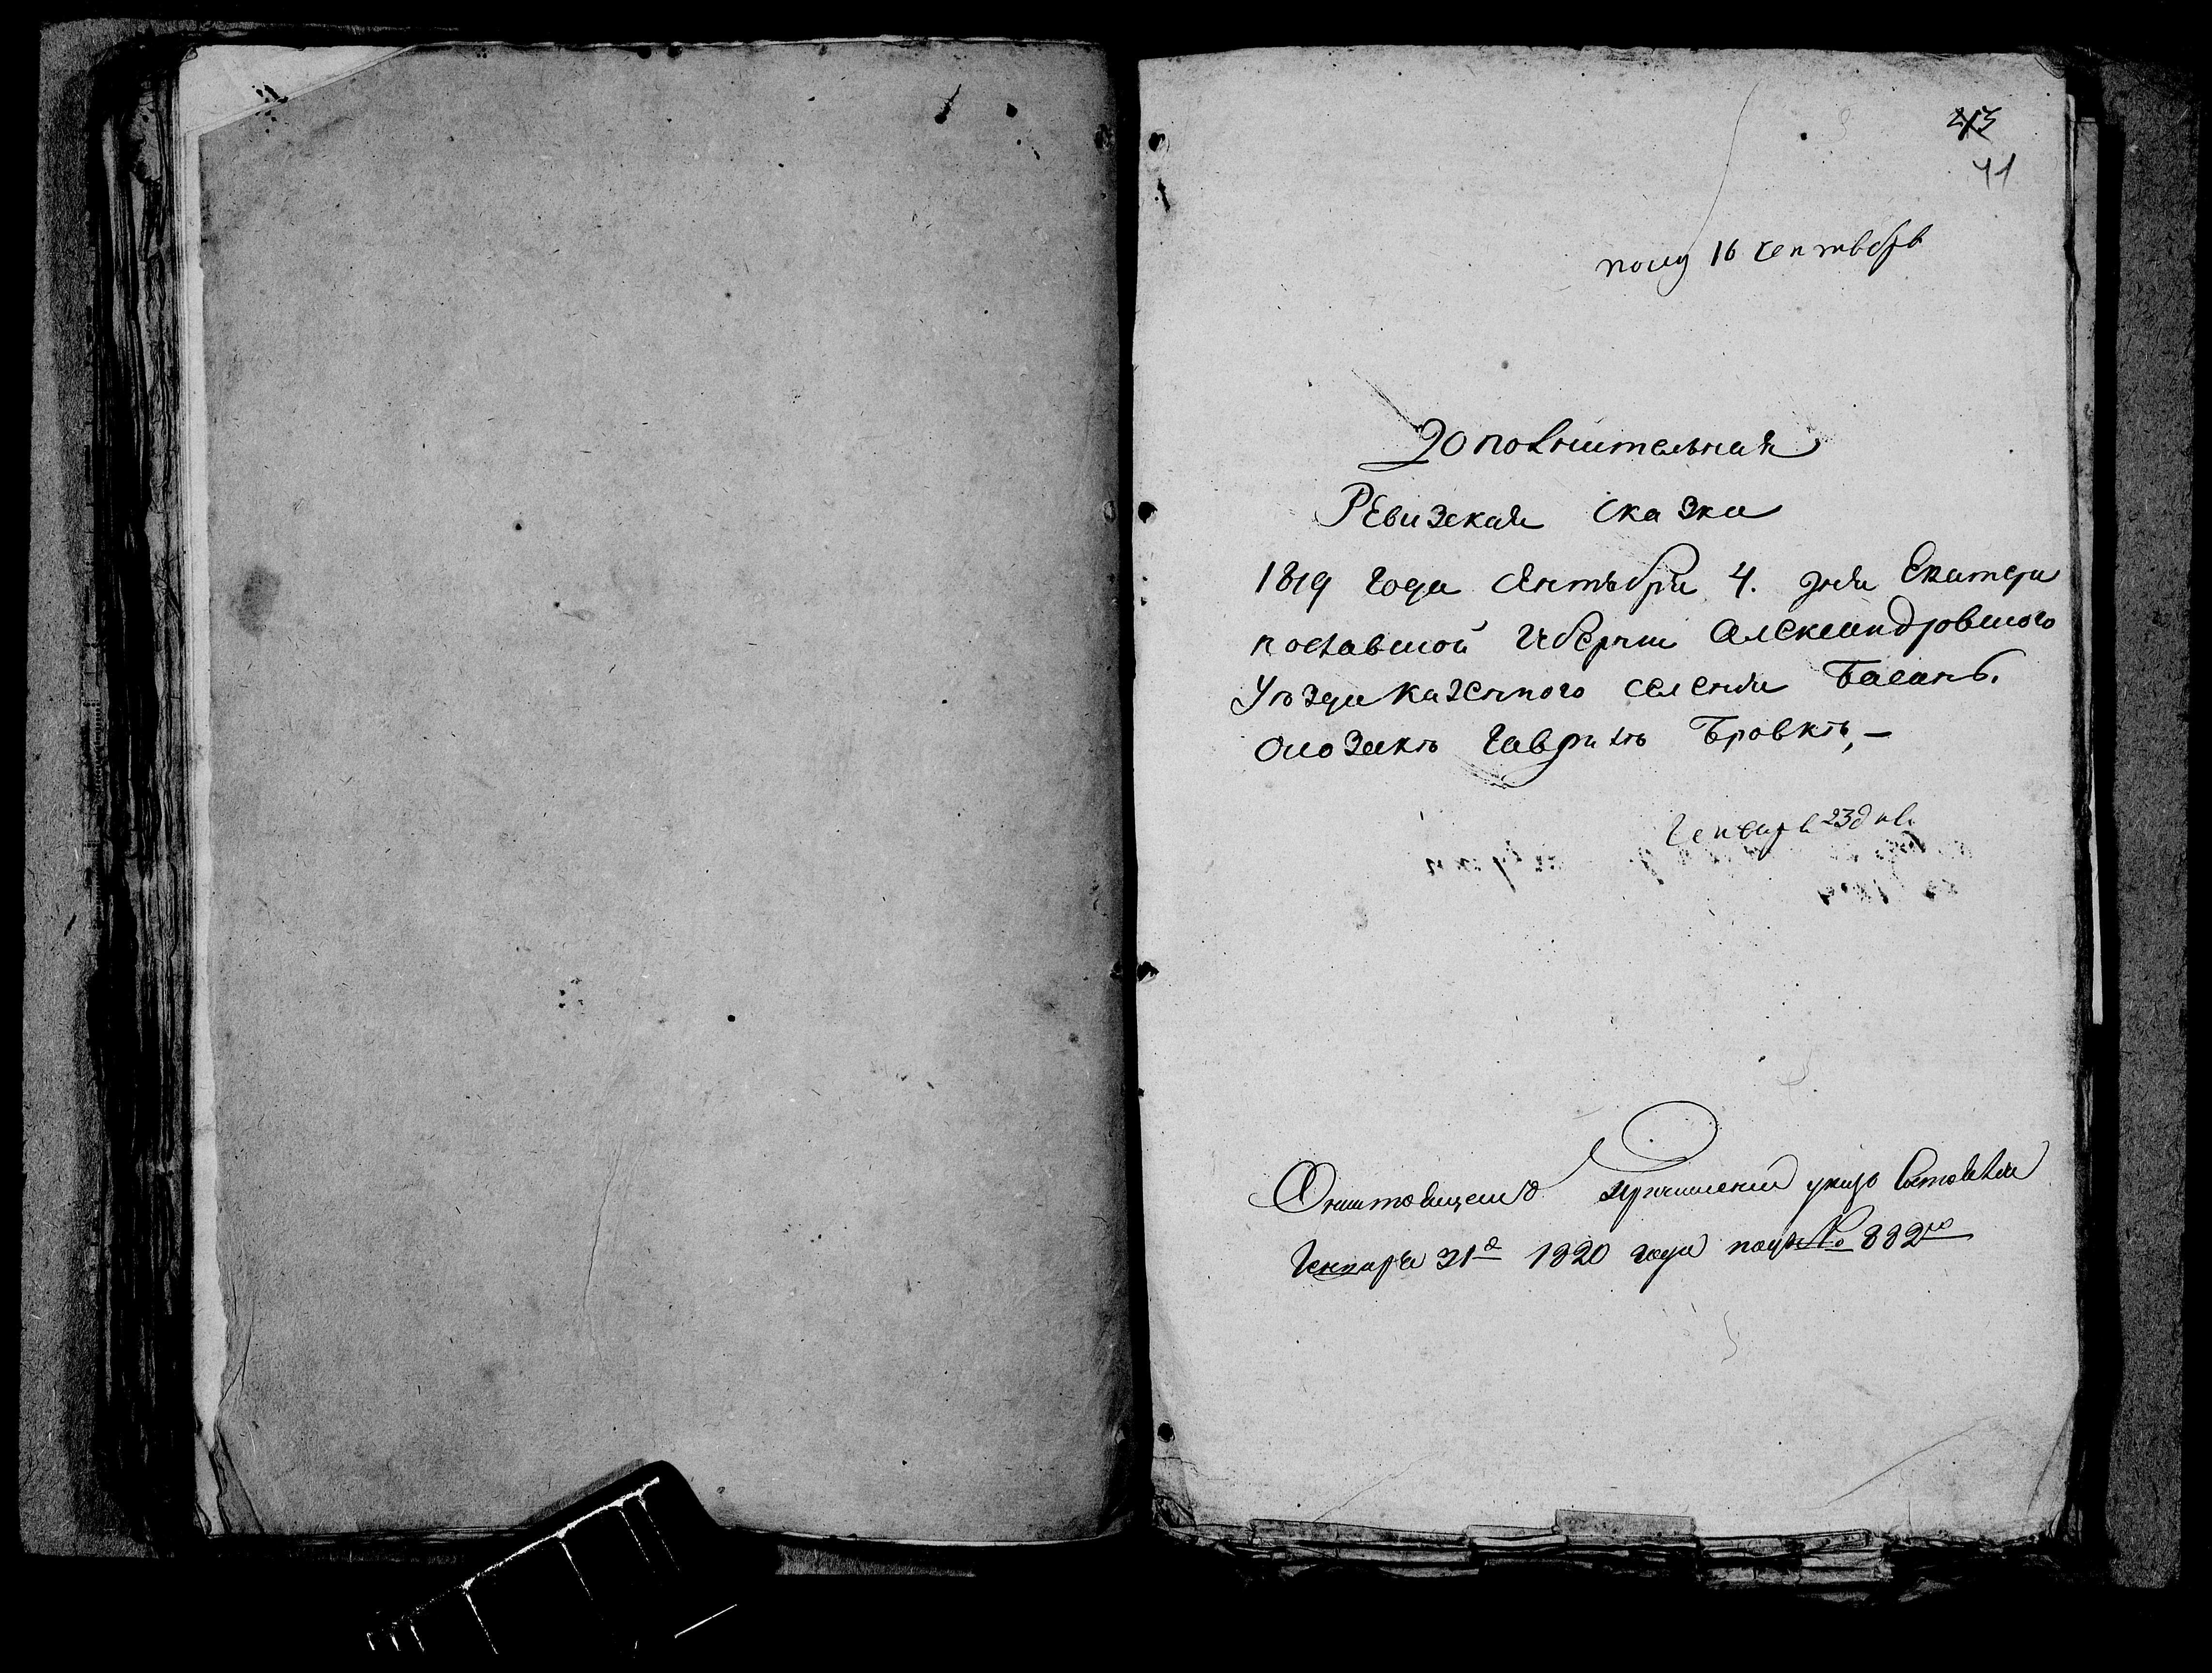 213
41
полу 16 сентября
Дополнительная
Ревизская сказка
1819 года сентября 4. дня Екатери
нославской Губернии Александровского
Уезда казенного селения Басань.
о Гавриле Бровке,—
Генваря 23 дня
о причислении указъ
Генваря 31 1820 года подъ № 882